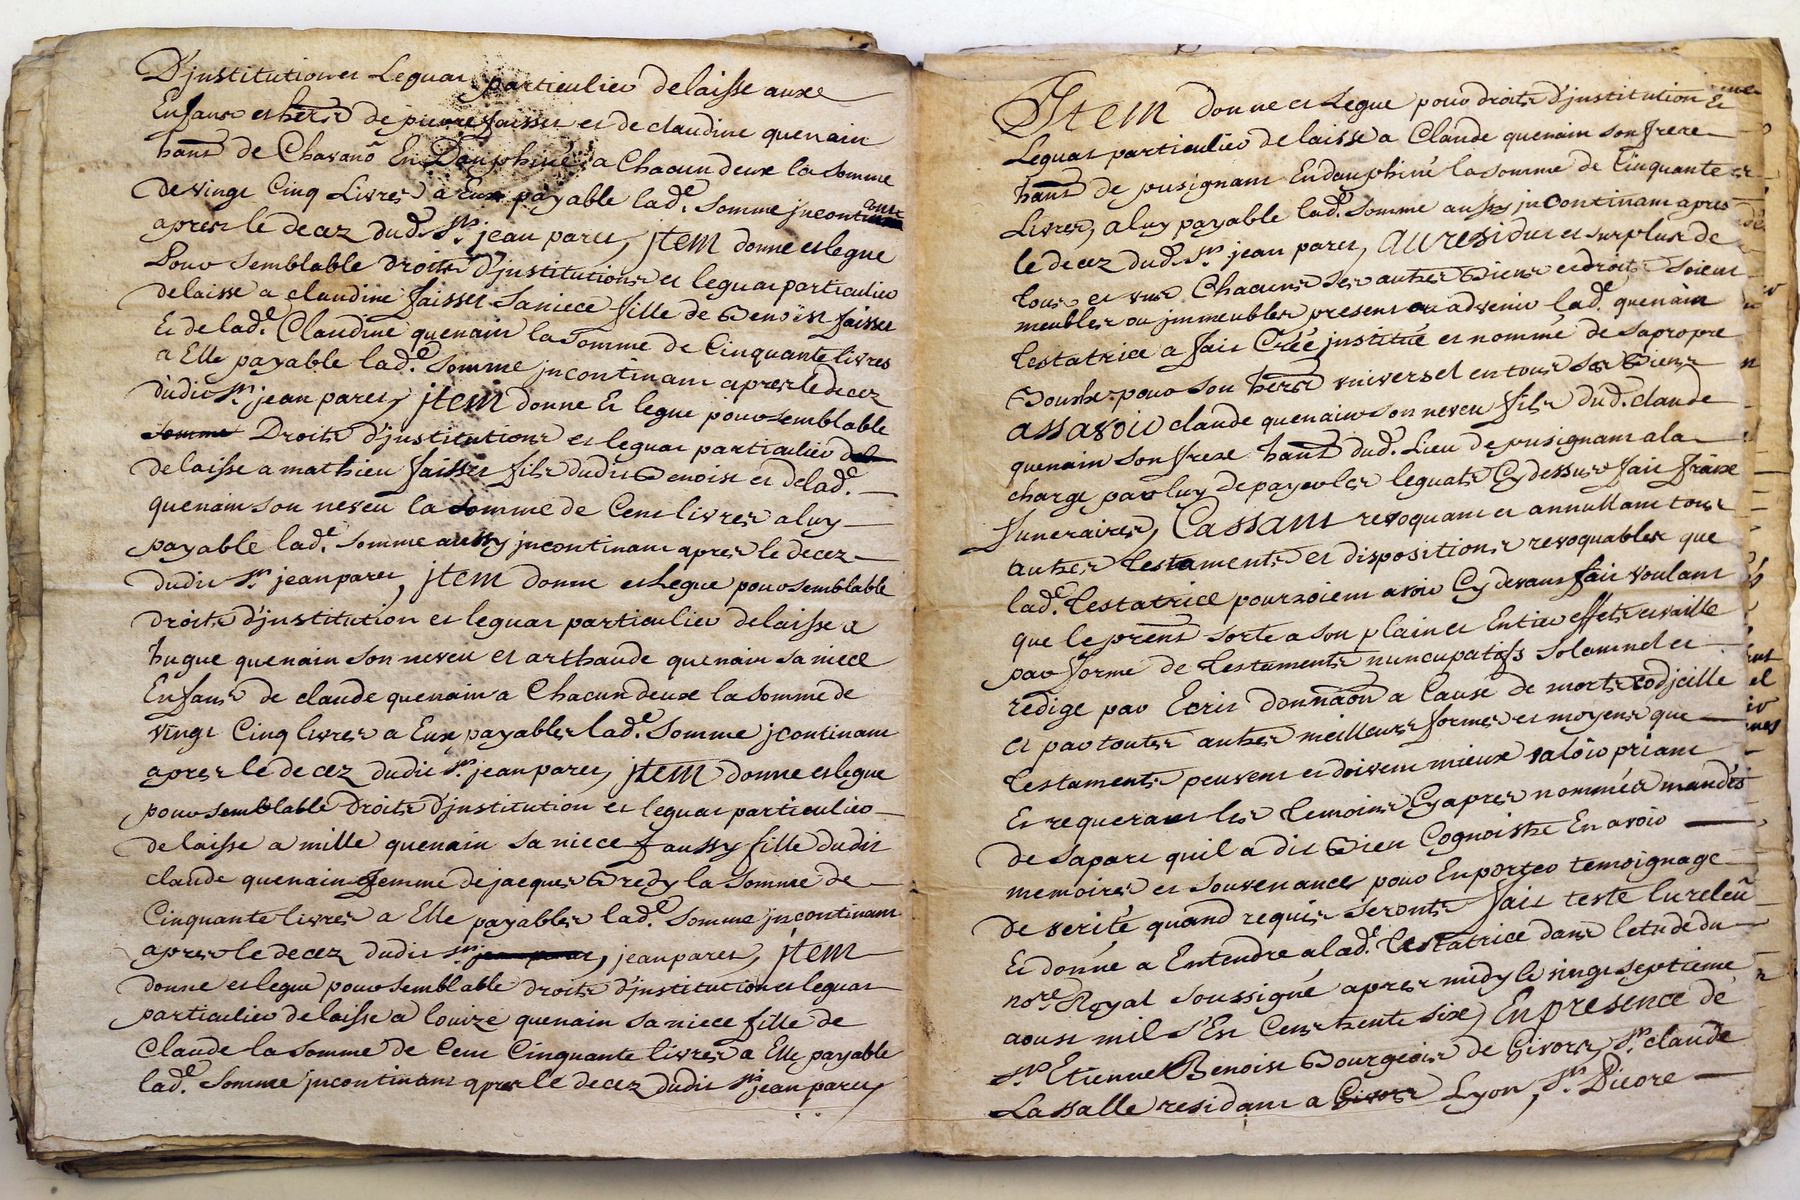 D'jnstitution et Leguat particulier delaisse aux
Enfans et hers de pierre faisset et de claudine quenain
hants de Chavanõ En Dauphiné a Chacun deux la somme
de vingt Cinq Livres a Eux payable lad.e Somme jncontinant
apres le decez dud. Sr. jean paret, jtem donne et legue
Pour Semblable droits d'jnstitutions et leguat particulier
delaisse a claudine faisset Saniece fille de Benoist faisset
Et de lad.e Claudine quenain la Somme de Cinquante livres
a Elle payable lad.e Somme jncontinant apres le decez
dudit Sr. jean paret, jtem donne Et legue pour semblable
Somme Droits d'jnstitutions et leguat particulier
delaisse a mathieu faisset fils dudit Benoist et delad.e
quenain son neveu la somme de Cent livres a luy
payable lad.e Somme aussy jncontinant apres le decez
dudit Sr. jean paret, jtem donne et Legue pour semblable
droits d'jnstitution et leguat particulier delaisse a
hugue quenain son neveu et arthaude quenain sa niece
Enfans de claude quenain a Chacun deux la Somme de
vingt Cinq livres a Eux payables lad.e Somme jcontinant
apres le decez dudit Sr. jean paret, jtem donne et legue
pour semblable droits d'jnstitution et leguat particulier
delaisse a mille quenain sa niece aussy fille dudit
claude quenain femme de jacques Bredy la Somme de
Cinquante livres a Elle payables lad.e Somme jncontinant
apres le decez dudit Sr. jean paret, jean paret, jtem
donne et legue pour semblable droits d'jnstitution et leguat
particulier delaisse a louize quenain sa niece fille de
Claude la Somme de Cent Cinquante livres a Elle payable
lad.e Somme jncontinant apres le decez dudit Sr. jean paret,
Jtem donne et Legue pour droits d'jnstitution Et
Leguat particulier delaisse a Claude quenain son frere
hant de pusignant En dauphiné la somme de Cinquante
Livres, a luy payable lad.e Somme aussy jncontinant apres
le decez dud. Sr. jean paret, au residut et surplus de
tous et uns Chacuns ses autres Biens et droits Soient
meubles ou jmmeubles presents ou advenir lad.e quenain
testatrice a fait Créé jnstitué et nommé de sa propre
Bouche pour son herer universel en tous ses Biens
assavoir claude quenain son neveu fils dud. claude
quenain son frere hant dud. Lieu de pusignant a la
charge par luy de payer les leguats Cy dessus fait fraix
funeraires, Cassant revoquant et annullant tous
autres testaments et dispositions revoquables que
lad.e testatrice pourroient avoir Cy devant fait voulant
que le prent sorte a son plain et Entier effet et vaille
par forme de testament nuncupatifs Solamnel et
redige par Ecrit donnaõn a Cause de mort codjcille
et par toutes autres meilleurs formes et moyens que
testaments peuvent et doivent mieux valoir priant
Et requerant les temoins Cy apres nommés mandés
de sa part quil a dit Bien Cognoistre En avoir
memoires et Souvenances pour En porter temoignage
de verité quand requis Seronts fait testé lu releu
Et donné a Entendre a lad.e testatrice dans letude du
nore. Royal Soussigné apres midy le vingt septieme
aoust mil sEpt Cent trente six, En presence de
Sr. Etienne Benoist Bourgeois de Givors, Sr. claude
Lassalle residant a Givors Lyon, Sr. Picore